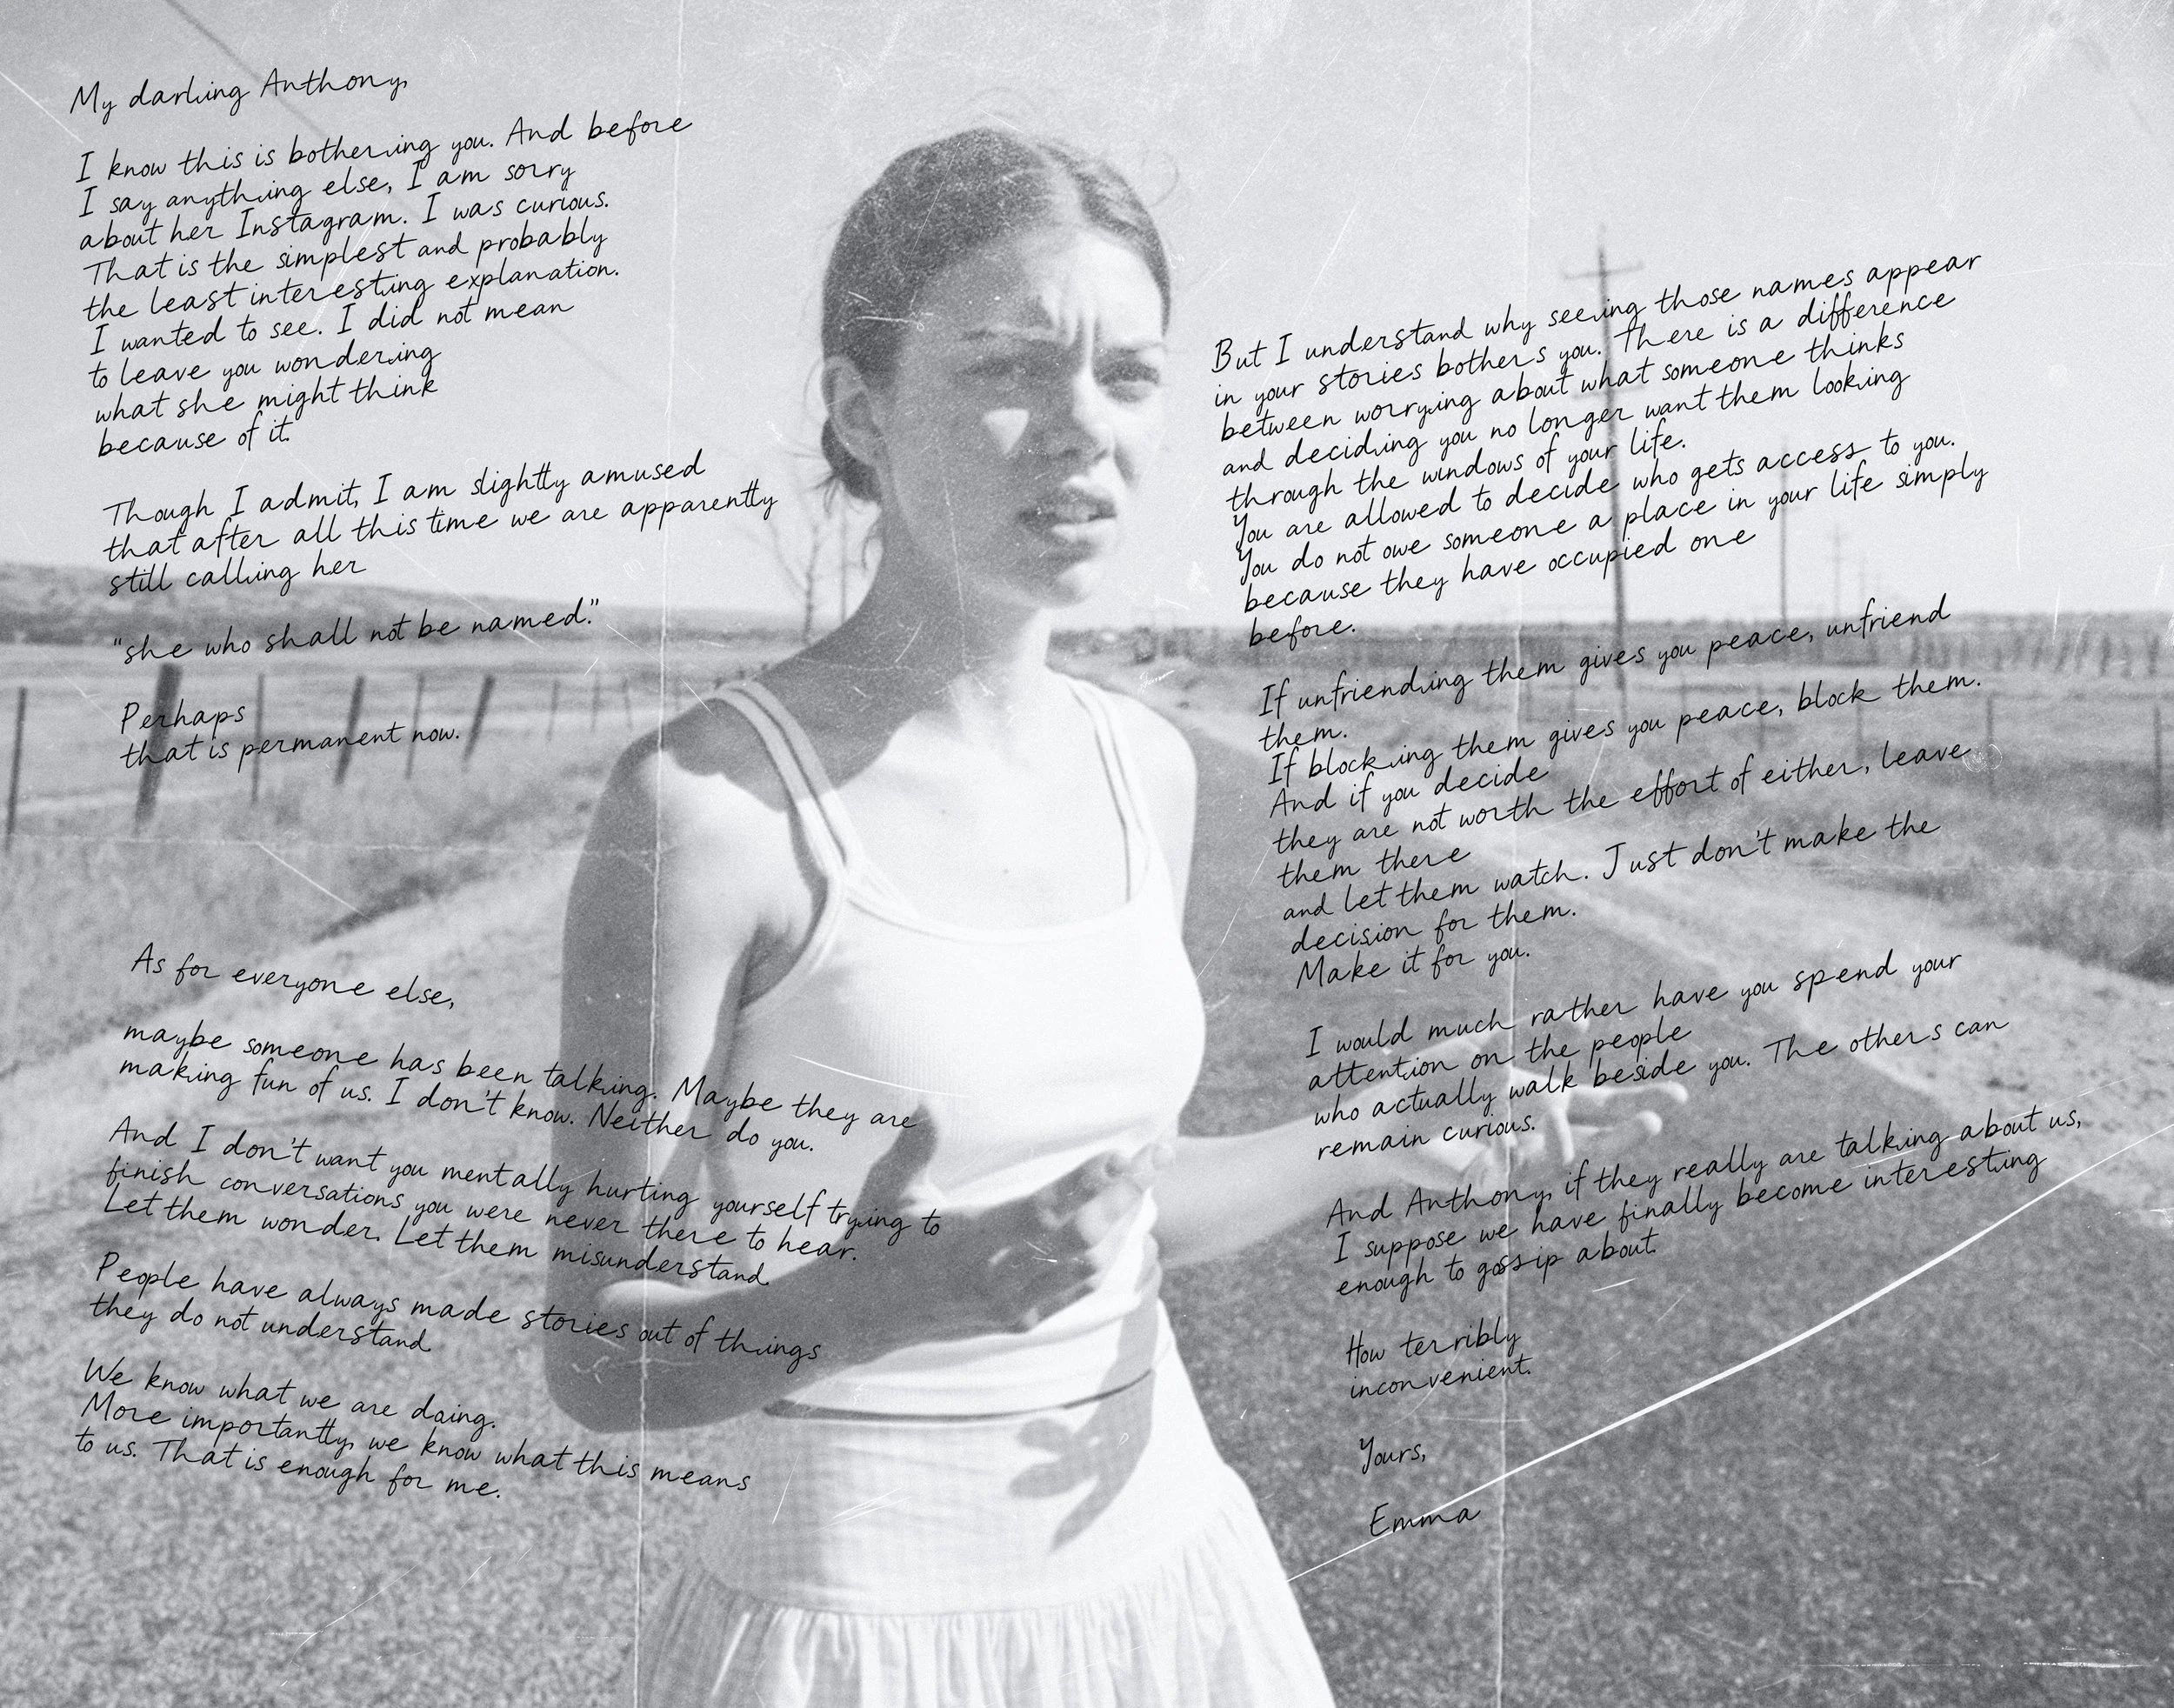 My darling Anthony,
I know this is bothering you. And before
I say anything else, I am sorry
about her Instagram. I was curious.
That is the simplest and probably
the least interesting explanation.
I wanted to see. I did not mean
to leave you wondering
what she might think
because of it.
Though I admit, I am slightly amused
that after all this time we are apparently
still calling her
"she who shall not be named."
Perhaps
that is permanent now.
As for everyone else,
maybe someone has been talking. Maybe they are
making fun of us. I don't know. Neither do you.
And I don't want you mentally hurting yourself trying to
finish conversations you were never there to hear.
Let them wonder. Let them misunderstand.
People have always made stories out of things
they do not understand.
We know what we are doing.
More importantly, we know what this means
to us. That is enough for me.
But I understand why seeing those names appear
in your stories bothers you. There is a difference
between worrying about what someone thinks
and deciding you no longer want them looking
through the windows of your life.
You are allowed to decide who gets access to you.
You do not owe someone a place in your life simply
because they have occupied one
before.
If unfriending them gives you peace, unfriend
them.
If blocking them gives you peace, block them.
And if you decide
they are not worth the effort of either, leave
them there
and let them watch. Just don't make the
decision for them.
Make it for you.
I would much rather have you spend your
attention on the people
who actually walk beside you. The others can
remain curious.
And Anthony, if they really are talking about us,
I suppose we have finally become interesting
enough to gossip about.
How terribly
inconvenient.
Yours,
Emma